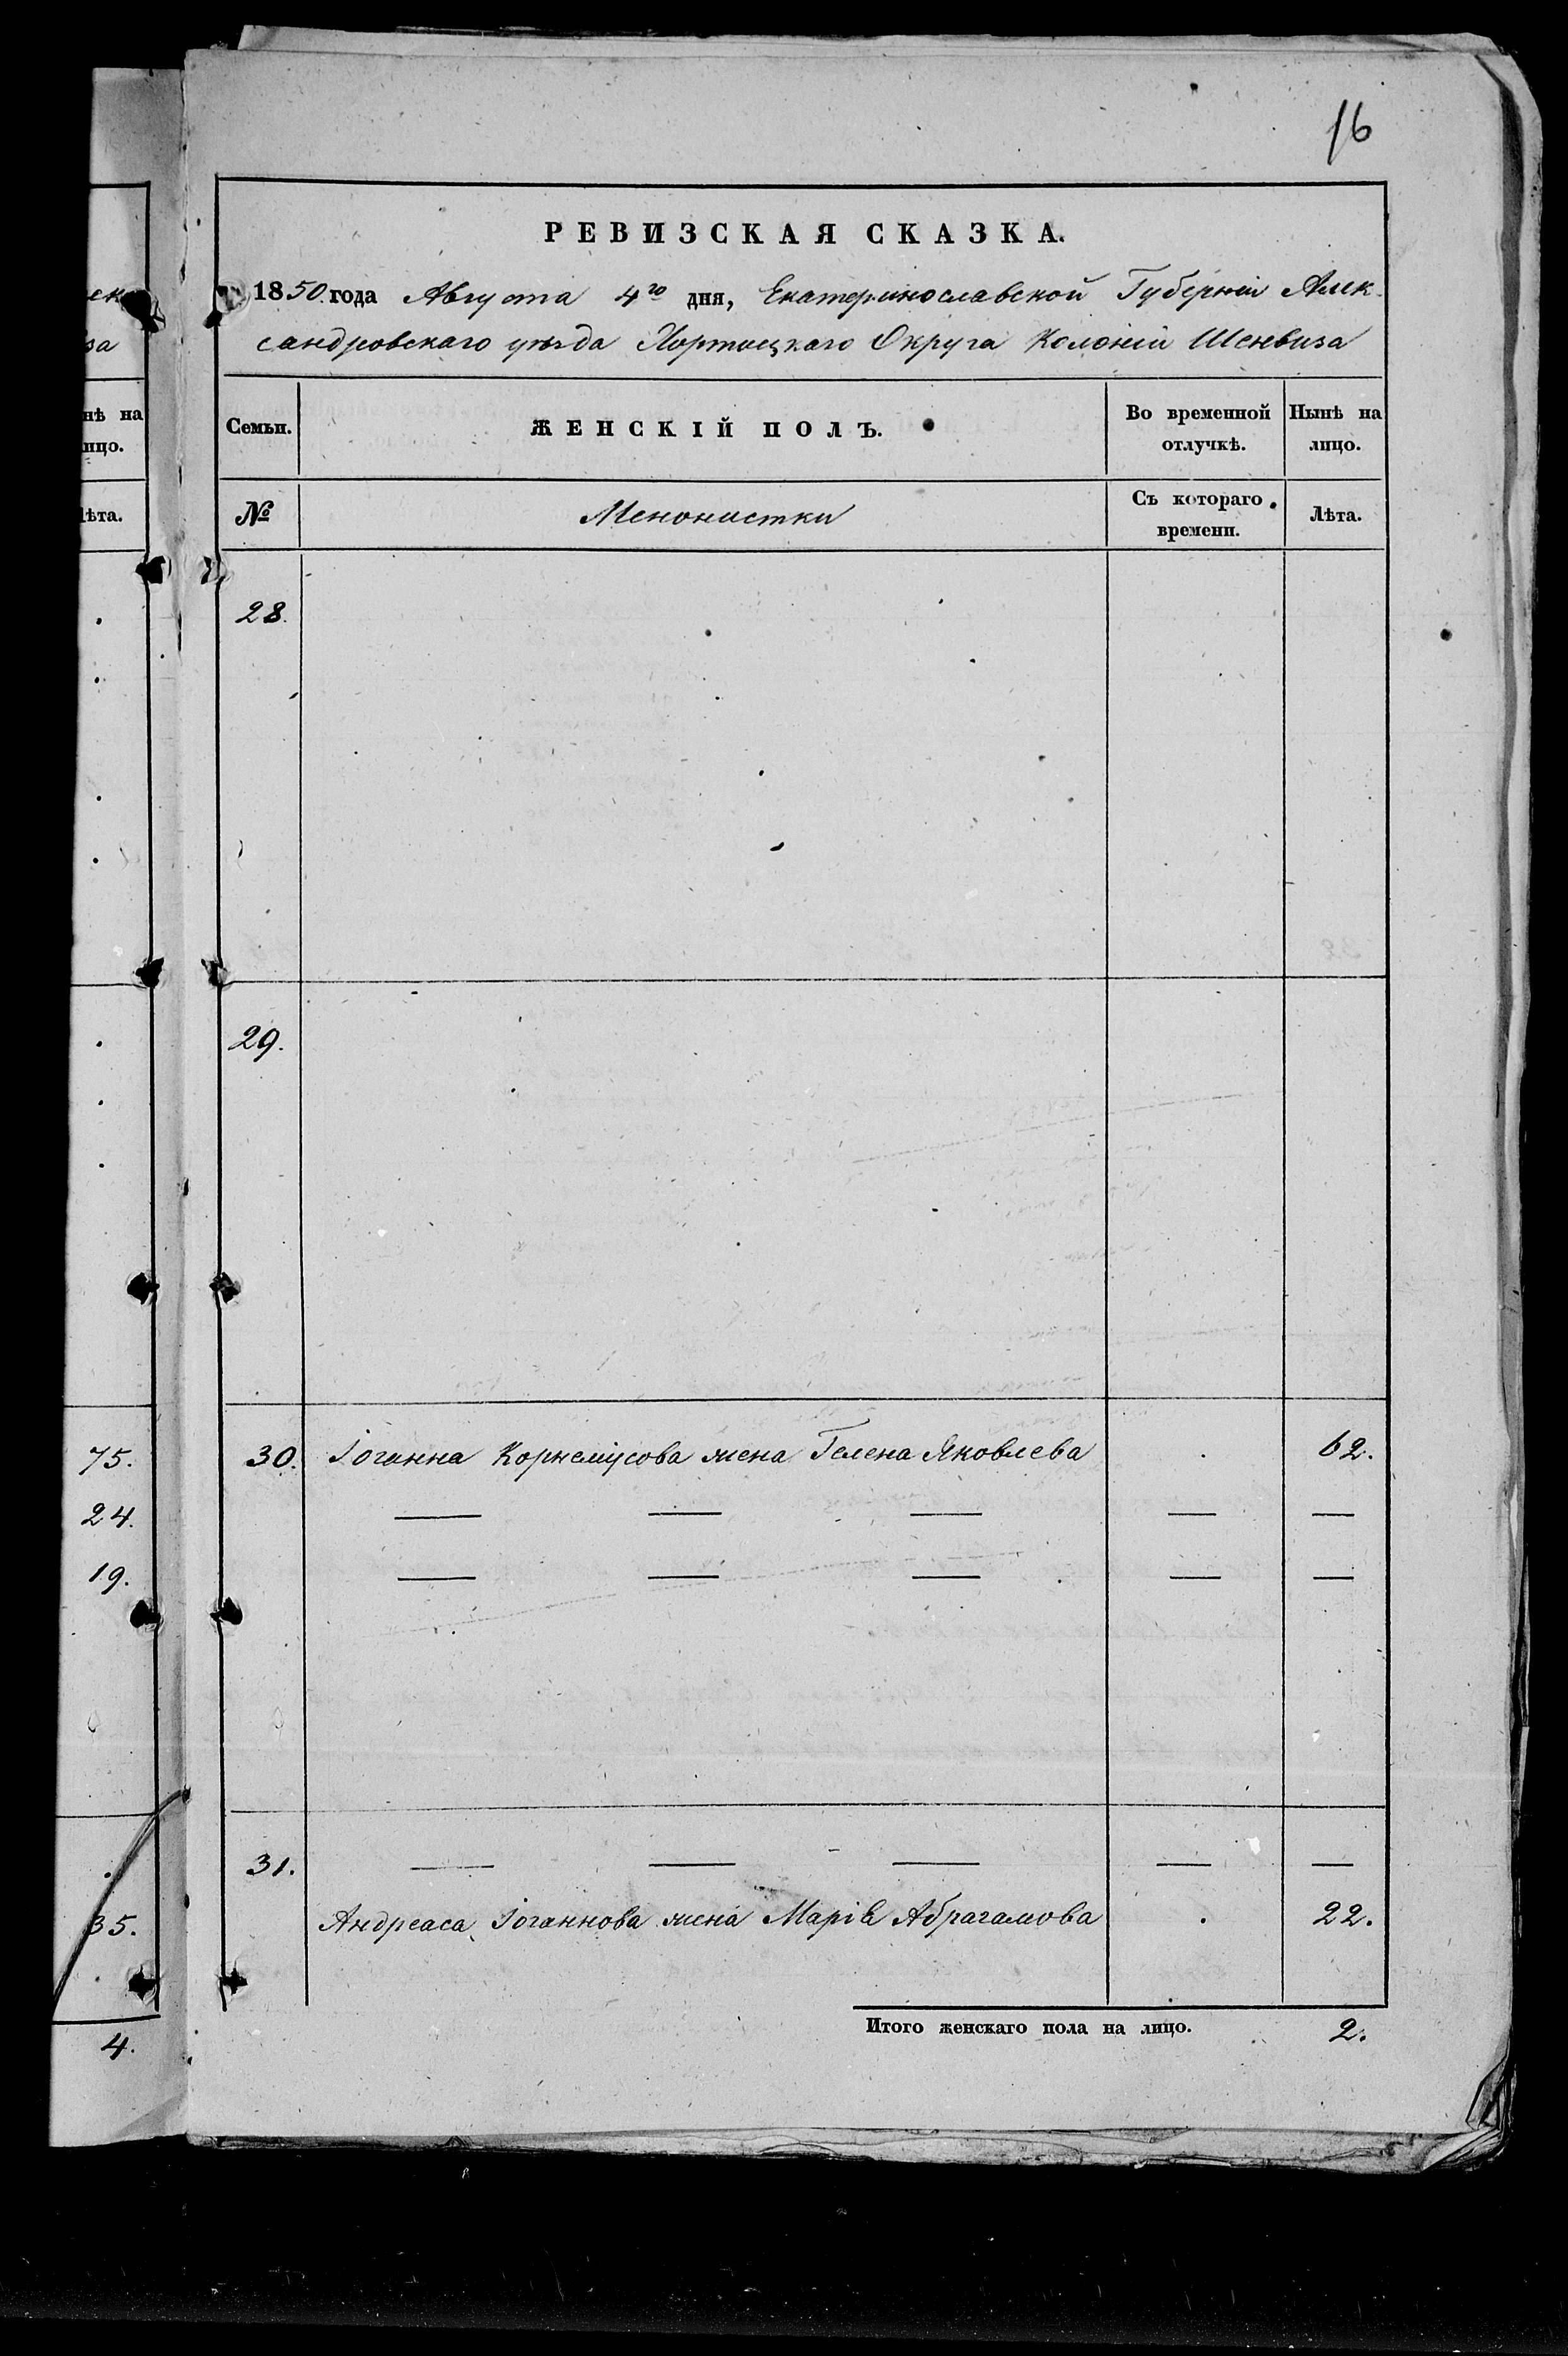 16
РЕВИЗСКАЯ СКАЗКА.
1850 года Августа 4го дня, Екатеринославской Губерніи Алек-
сандровскаго уѣзда Хортицкаго Округа Колоніи Шенвиза
Семьи. ЖЕНСКІЙ ПОЛЪ. Во временной отлучкѣ. Нынѣ на лицо.
№ Менонистки Съ котораго времени. Лѣта.
28.
29.
30. Іоганна Корнеліусова жена Гелена Яковлева . 62.
— — — — —
— — — — —
31. — — — — —
Андреаса Іоганнова жена Марія Абрагамова . 22.
Итого женскаго пола на лицо. 2.
нѣ на
ицо.
ѣта.
75.
24.
19.
35.
4.